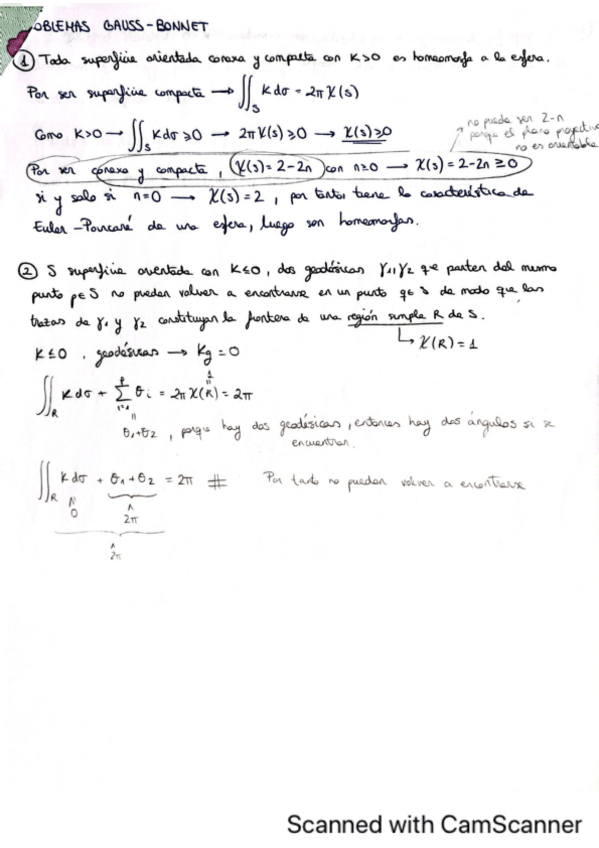 OBLEMAS GAUSS-BONNET
① Toda superficie orientada conexa y compacta con K>0 es homeomorfa a la esfera.
Por ser superficie compacta → ∬_S K dσ = 2π χ(S)
Como K>0 → ∬_S K dσ ≥ 0 → 2π χ(S) ≥ 0 → χ(S) ≥ 0
no puede ser 2-n
porque el plano proyectivo
no es orientable
Por ser conexa y compacta, χ(S) = 2-2n con n≥0 → χ(S) = 2-2n ≥ 0
si y solo si n=0 → χ(S) = 2, por tanto tiene la característica de
Euler-Poincaré de una esfera, luego son homeomorfas.
② S superficie orientada con K≤0, dos geodésicas γ₁, γ₂ que parten del mismo
punto p∈S no pueden volver a encontrarse en un punto q∈S de modo que las
trazas de γ₁ y γ₂ constituyan la frontera de una región simple R de S.
↳ χ(R) = 1
K≤0, geodésicas → Kg = 0
∬_R K dσ + Σ_{i=1}^{p} θi = 2π χ(R) = 2π
1
θ₁+θ₂, porque hay dos geodésicas, entonces hay dos ángulos si se
encuentran.
∬_R K dσ + θ₁+θ₂ = 2π # Por tanto no pueden volver a encontrarse
0
2π
2π
Scanned with CamScanner